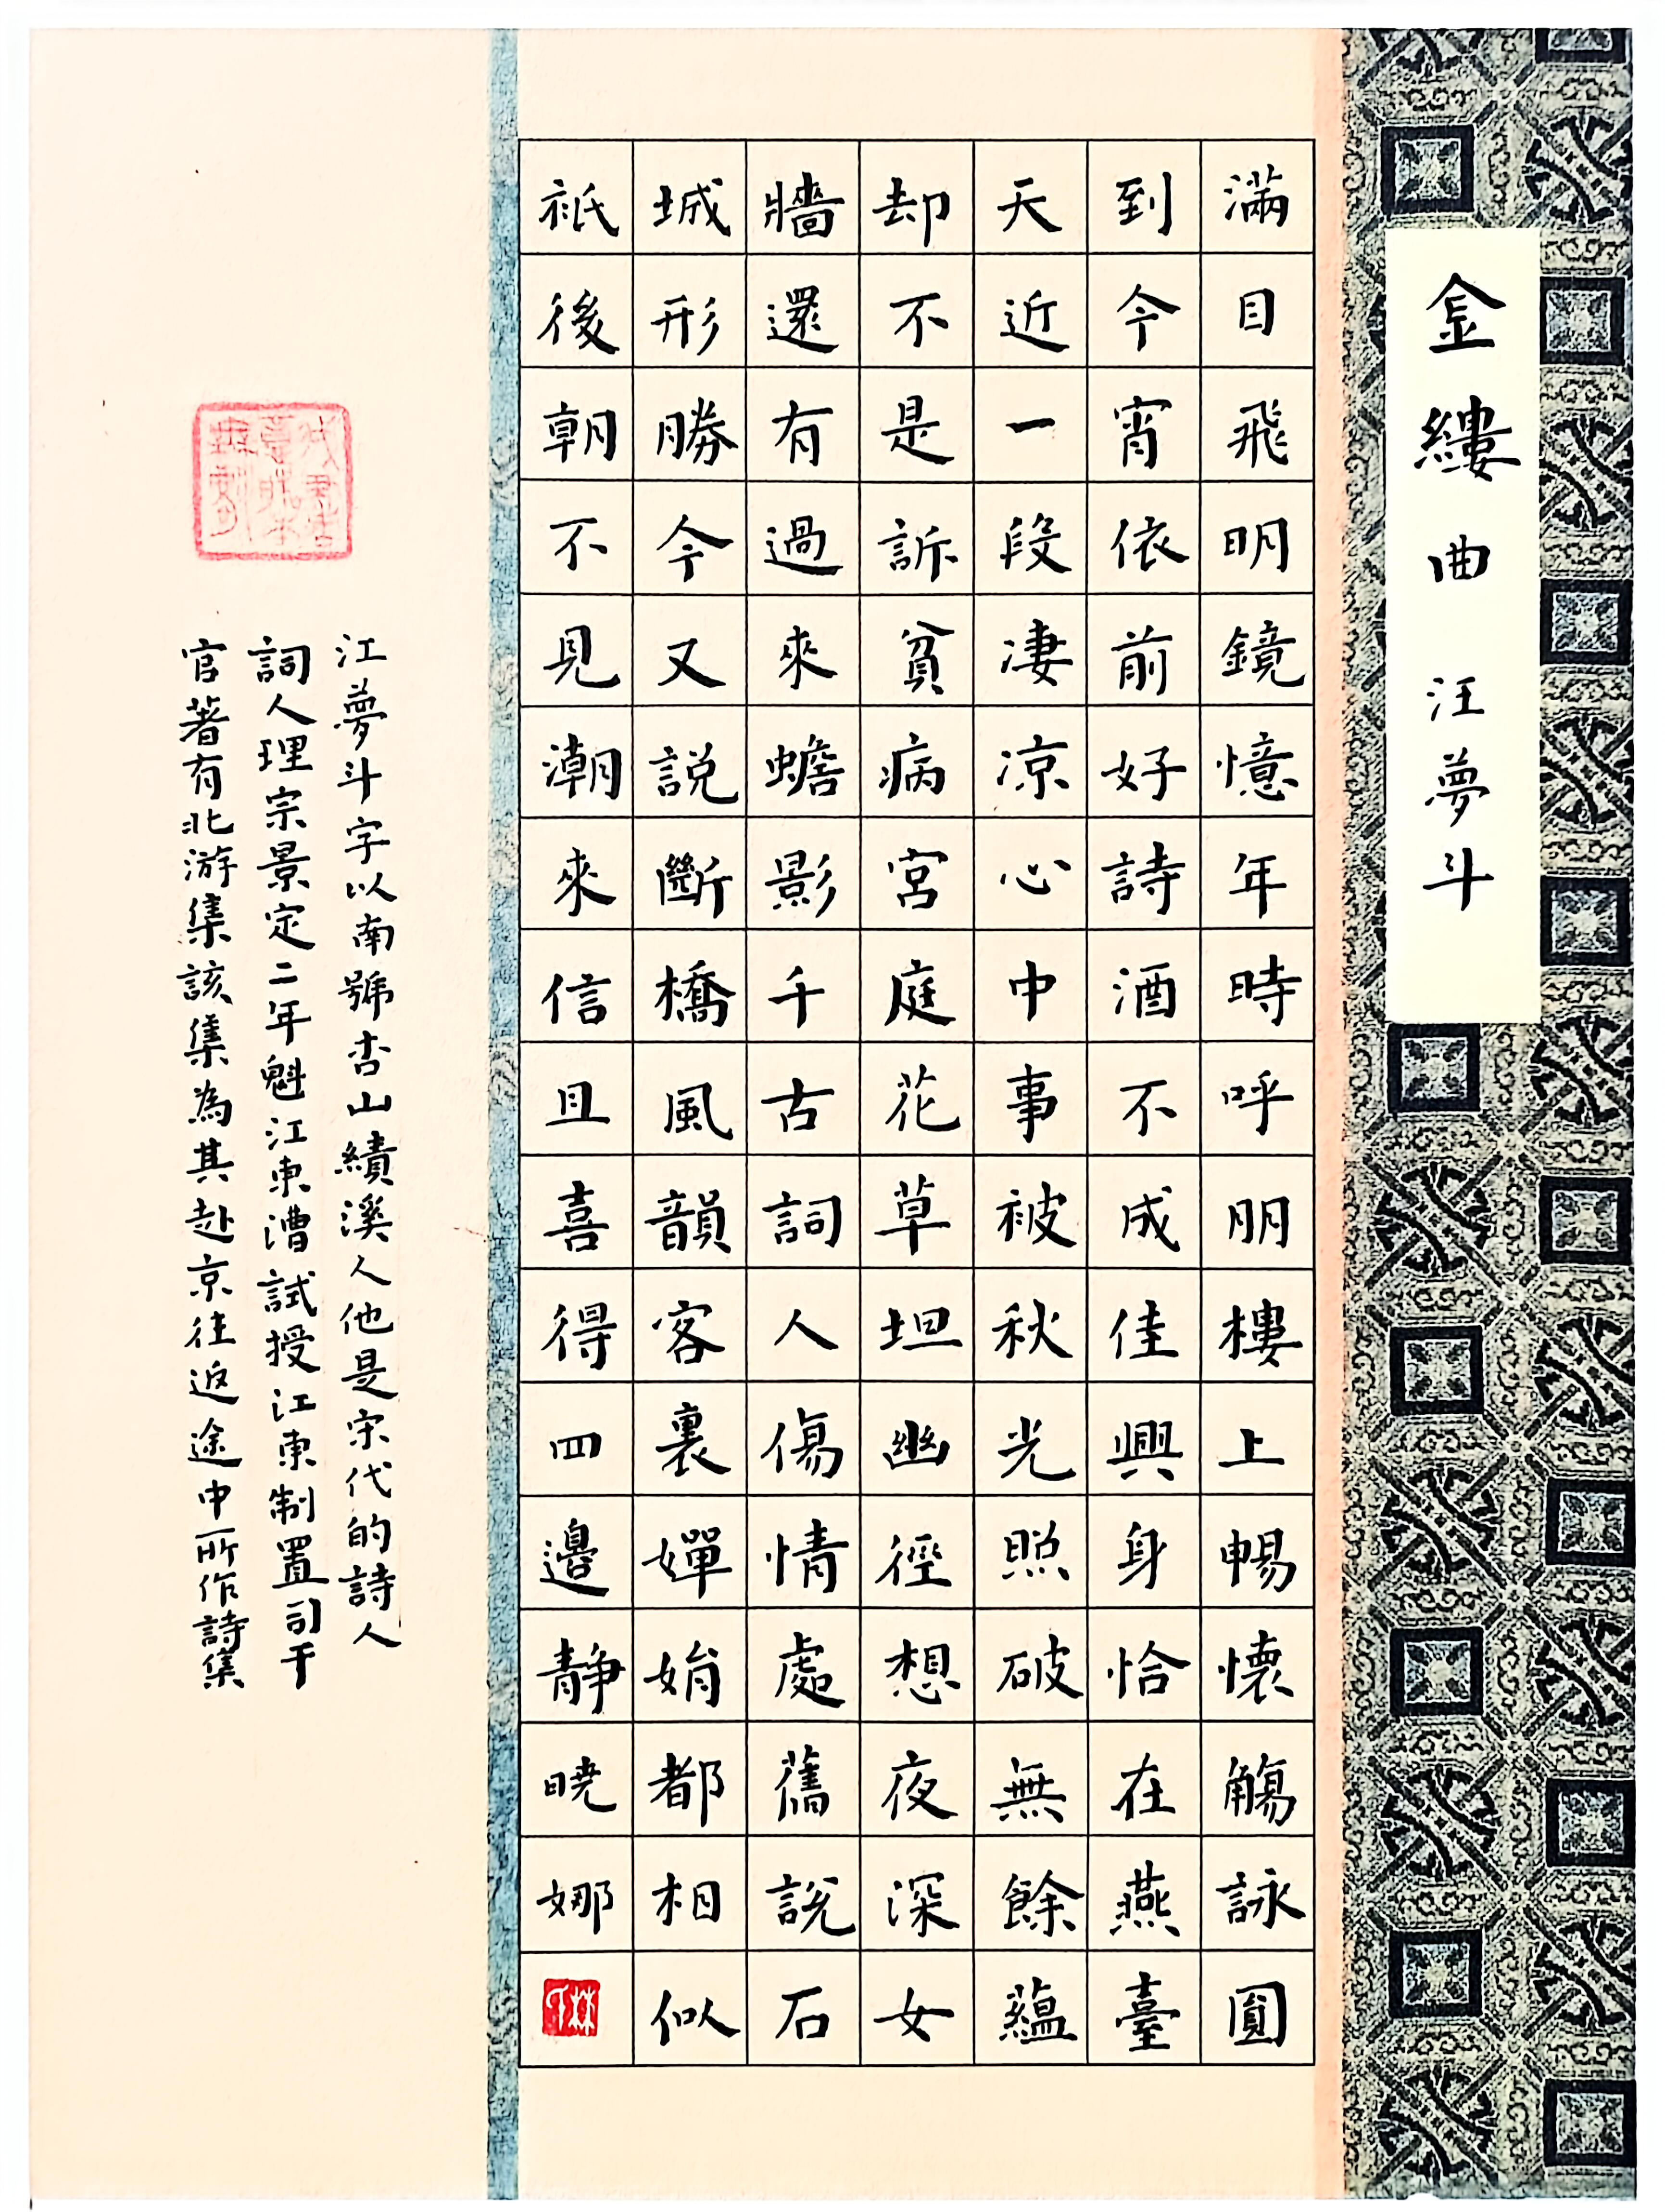 金縷曲 汪夢斗
滿目飛明鏡憶年時呼朋樓上暢懷觴詠圓
到今宵依前好詩酒不成佳興身恰在燕臺
天近一段淒涼心中事被秋光照破無餘蘊
却不是訴貧病宮庭花草坦幽徑想夜深女
牆還有過來蟾影千古詞人傷情處舊說石
城形勝今又說斷橋風韻客裏嬋娟都相似
祇後朝不見潮來信且喜得四邊靜曉娜
江夢斗字以南號杏山績溪人他是宋代的詩人
詞人理宗景定二年魁江東漕試授江東制置司干
官著有北游集該集為其赴京往返途中所作詩集